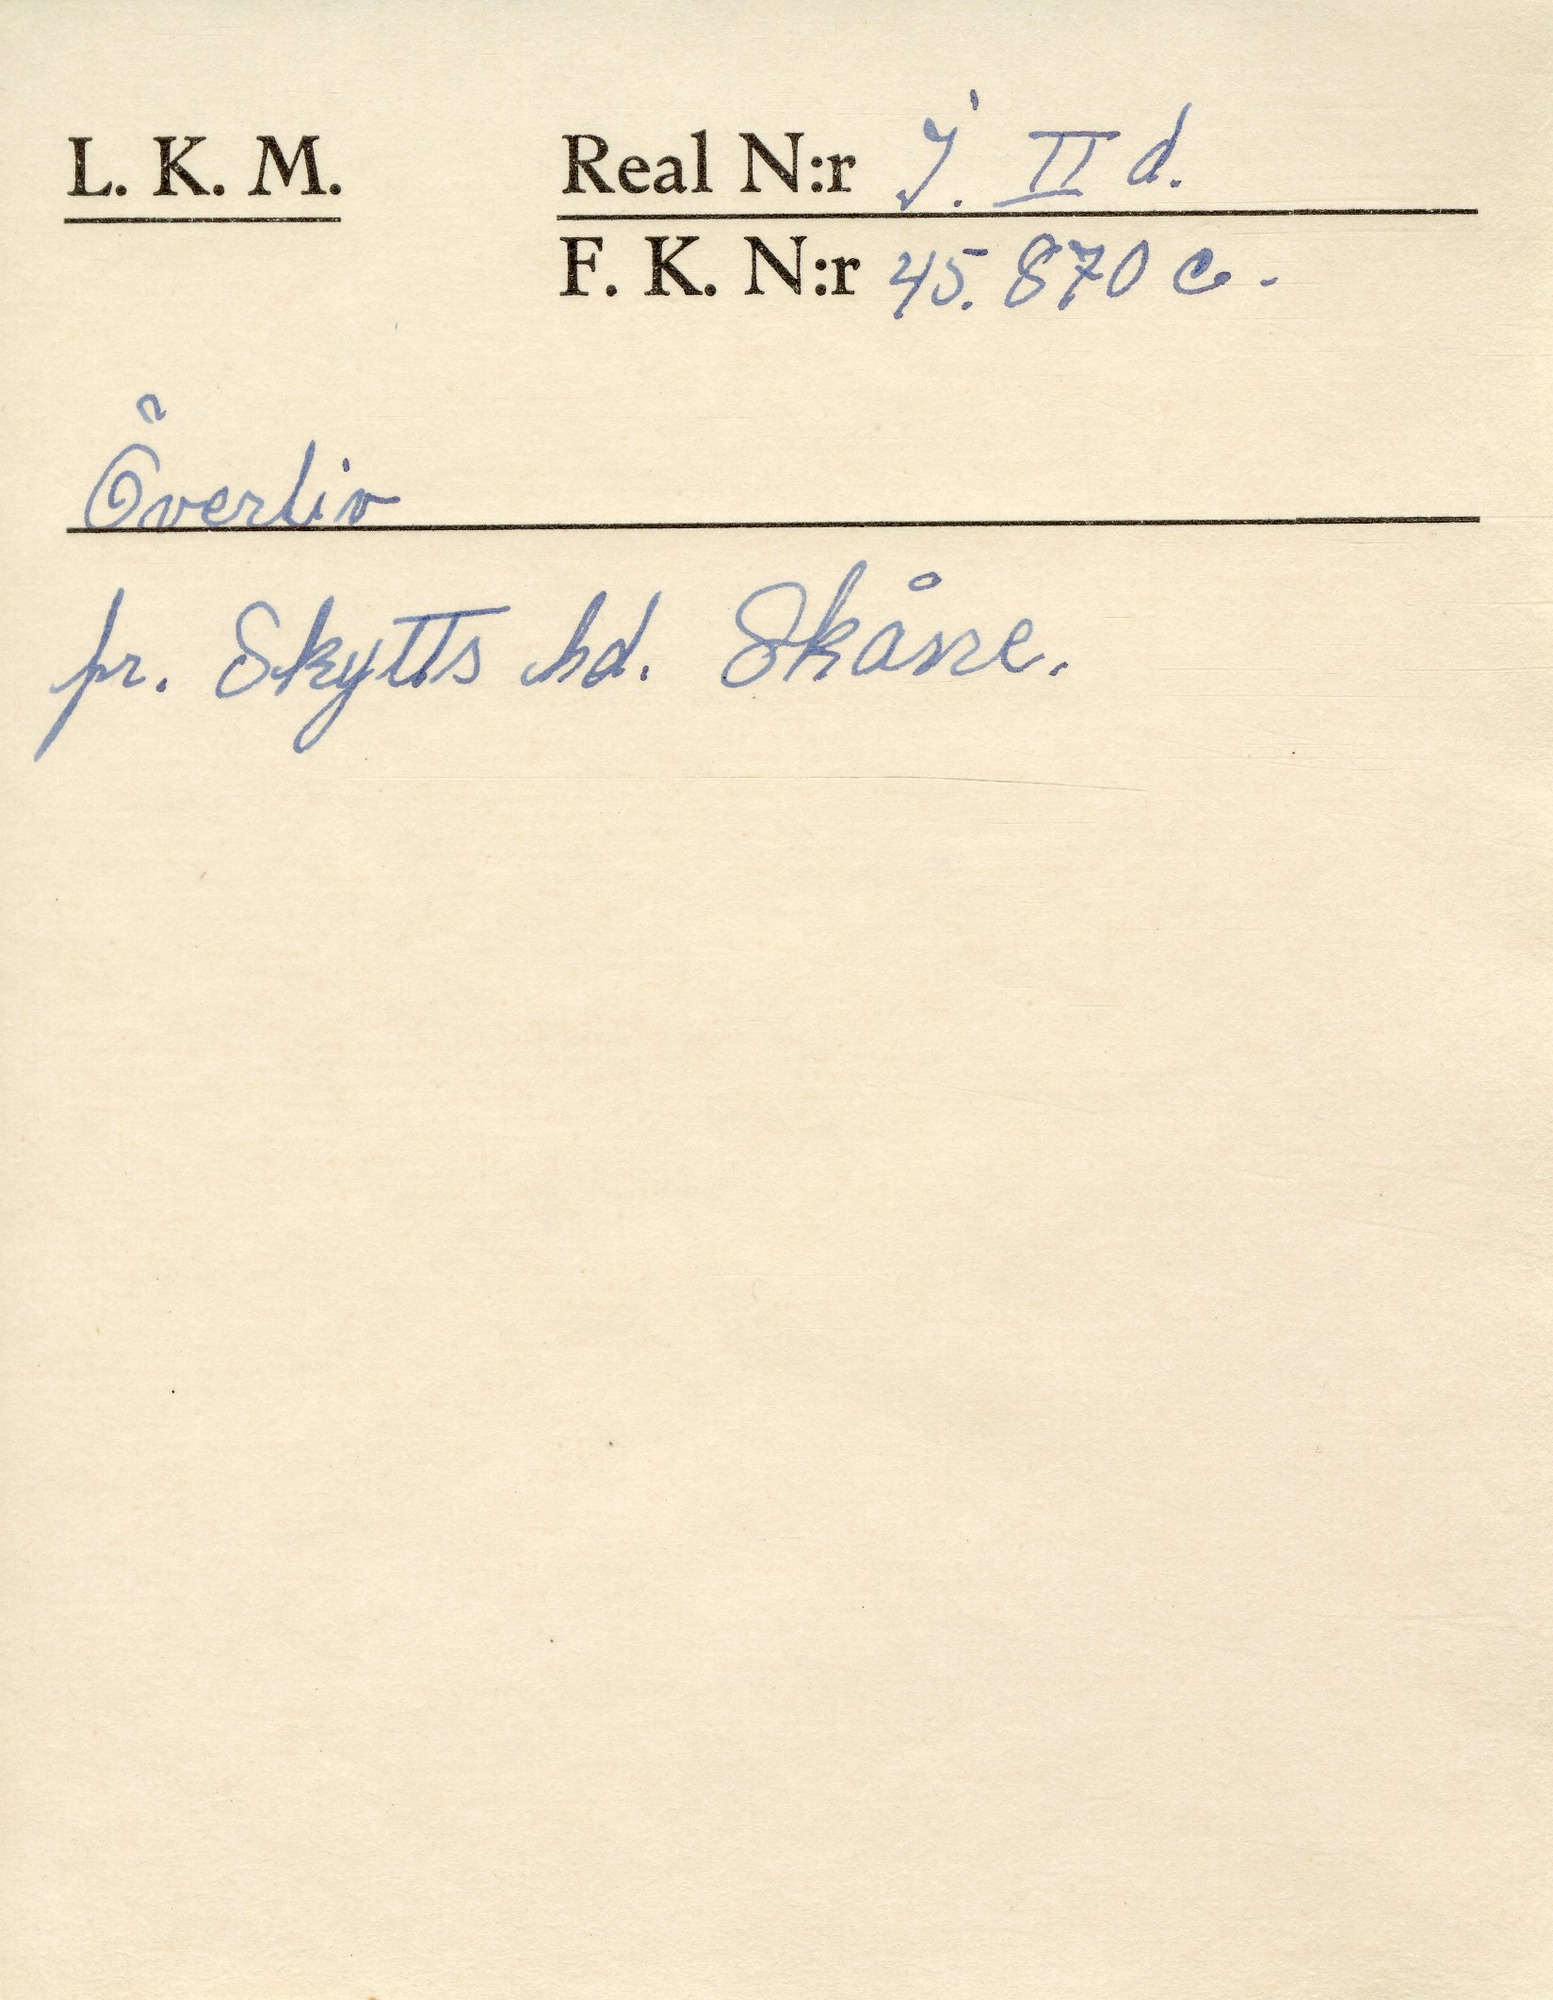 L. K. M.
Real N:r J. II d.
F. K. N:r 45.870 c.
Överliv
pr. Skytts hd. Skåne.